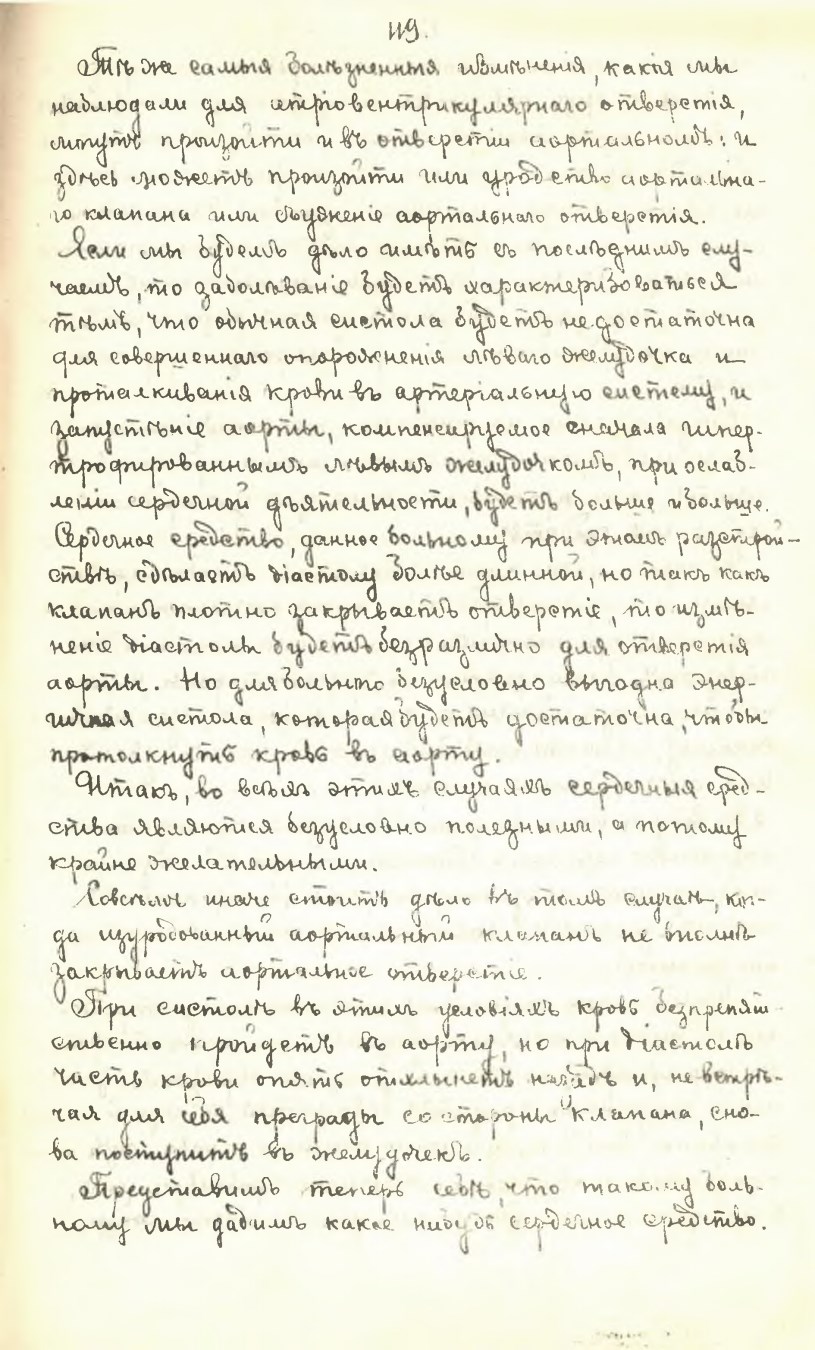 119.
Тѣ же самыя болѣзненныя измѣненія, какія мы
наблюдали для атріовентрикулярнаго отверстія,
могутъ произойти и въ отверстіи аортальномъ: и
здѣсь можетъ произойти или уродство аортальна-
го клапана или съуженіе аортальнаго отверстія.
Если мы будемъ дѣло имѣть съ послѣднимъ слу-
чаемъ, то заболѣваніе будетъ характеризоваться
тѣмъ, что обычная систола будетъ недостаточна
для совершеннаго опорожненія лѣваго желудочка и
проталкиванія крови въ артеріальную систему, и
запустѣніе аорты, компенсируемое сначала гипер-
трофированнымъ лѣвымъ желудочкомъ, при ослаб-
леніи сердечной дѣятельности, будетъ больше и больше.
Сердечное средство, данное больному при этомъ разстрой-
ствѣ, сдѣлаетъ діастолу болѣе длинной, но такъ какъ
клапанъ плотно закрываетъ отверстіе, то измѣ-
неніе діастолы будетъ безразлично для отверстія
аорты. Но для больного безусловно выгодна энер-
гичная систола, которая будетъ достаточна, чтобы
протолкнуть кровь въ аорту.
Итакъ, во всѣхъ этихъ случаяхъ сердечныя сред-
ства являются безусловно полезными, а потому
крайне желательными.
Совсѣмъ иначе стоитъ дѣло въ томъ случаѣ, ког-
да изуродованный аортальный клапанъ не вполнѣ
закрываетъ аортальное отверстіе.
При систолѣ въ этихъ условіяхъ кровь безпрепят-
ственно пройдетъ въ аорту, но при діастолѣ
часть крови опять отхлынетъ назадъ и, не встрѣ-
чая для себя преграды со стороны клапана, сно-
ва поступитъ въ желудочекъ.
Представимъ теперь себѣ, что такому боль-
ному мы дадимъ какое нибудь сердечное средство.